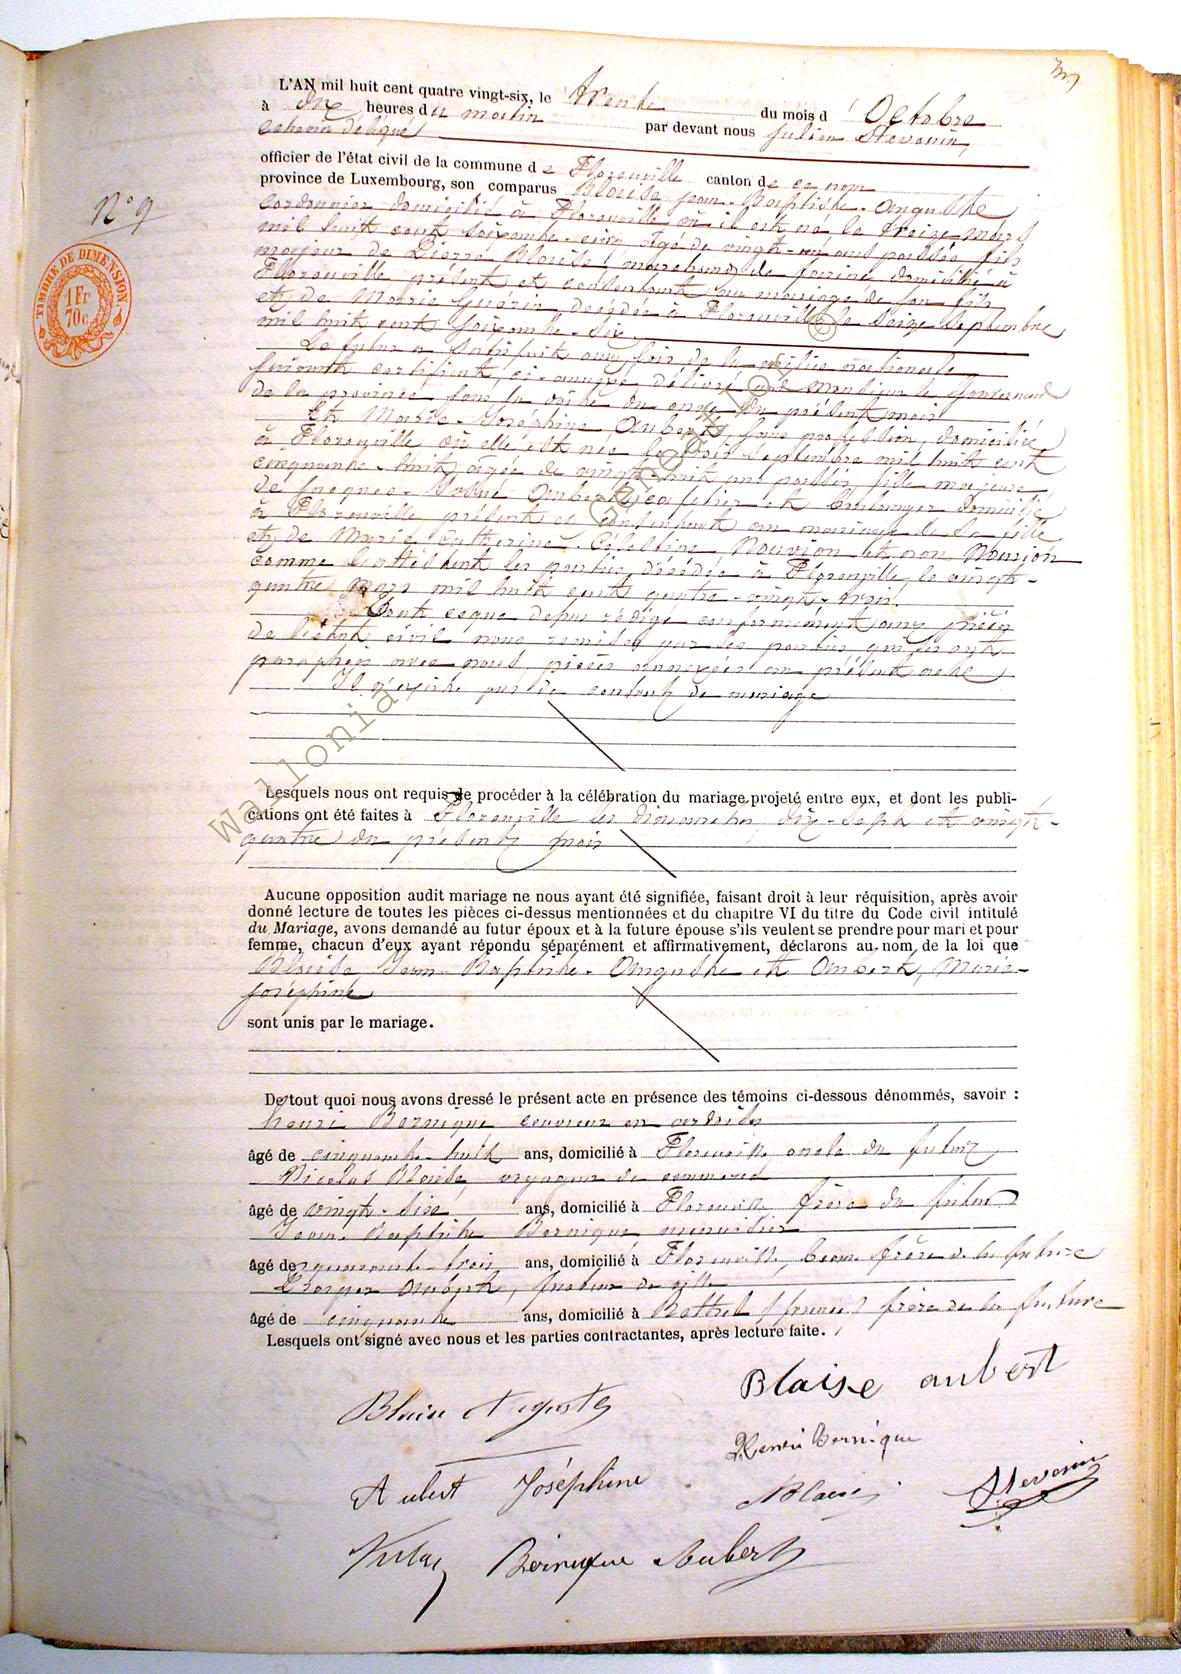 L'AN mil huit cent quatre vingt-six, le trente du mois d'Octobre
à dix heures du matin par devant nous Julien Stevenin,
échevin délégué
officier de l'état civil de la commune de Florenville canton de ce nom
province de Luxembourg, son comparus Blaise Jean-Baptiste-Auguste
Cordonnier domicilié à Florenville où il est né le treize mars
mil huit cent soixante-cinq âgé de vingt-un ans passés fils
majeur de Pierre Blaise, marchand de farine domicilié à
Florenville présent et consentant au mariage de son fils
et de Marie Guérin, décédée à Florenville le seize septembre
mil huit cent soixante-six
Le futur a satisfait aux lois de la milice nationale
suivant certificat, ci-annexé délivré par Monsieur le Gouverneur
de la province sous la date du onze du présent mois
Et Marie-Joséphine Aubert, sans profession, domiciliée
à Florenville où elle est née le trois septembre mil huit cent
cinquante-huit âgée de vingt-huit ans passés, fille majeure
de Jacques-Aubert cafetier et boulanger domicilié
à Florenville présent et consentant au mariage de sa fille
et de Marie Catherine-Célestine Nouvion et non Nourion
comme l'attestent les parties, décédée à Florenville le vingt-
quatre mars mil huit cent quatre-vingt-trois.
Tout ce que dessus rédigé conformément aux pièces
de l'état civil nous remises par les parties qui les ont
paraphées avec nous, pièces annexées au présent acte
Il n'existe pas de contrat de mariage
Lesquels nous ont requis de procéder à la célébration du mariage projeté entre eux, et dont les publi-
cations ont été faites à Florenville les dimanches, dix-sept et vingt-
quatre du présent mois
Aucune opposition audit mariage ne nous ayant été signifiée, faisant droit à leur réquisition, après avoir
donné lecture de toutes les pièces ci-dessus mentionnées et du chapitre VI du titre du Code civil intitulé
du Mariage, avons demandé au futur époux et à la future épouse s'ils veulent se prendre pour mari et pour
femme, chacun d'eux ayant répondu séparément et affirmativement, déclarons au nom de la loi que
Blaise, Jean-Baptiste-Auguste et Aubert, Marie-
Joséphine
sont unis par le mariage.
De tout quoi nous avons dressé le présent acte en présence des témoins ci-dessous dénommés, savoir :
Henri Bernique couvreur en ardoises
âgé de cinquante-huit ans, domicilié à Florenville oncle du futur
Nicolas Blaise, voyageur de commerce
âgé de vingt-six ans, domicilié à Florenville frère du futur
Jean-Baptiste Bernique menuisier
âgé de quarante-trois ans, domicilié à Florenville, beau-frère de la future
Aubert, facteur de ville
âgé de cinquante ans, domicilié à Rethel (france) frère de la future
Lesquels ont signé avec nous et les parties contractantes, après lecture faite.
Blaise Auguste
Blaise aubert
Henri Bernique
Aubert Joséphine
NBlaise
Stevenin
Bernique Aubert
N° 9
TIMBRE DE DIMENSION.
1 Fr
70c
Wallonia
Genealo
©